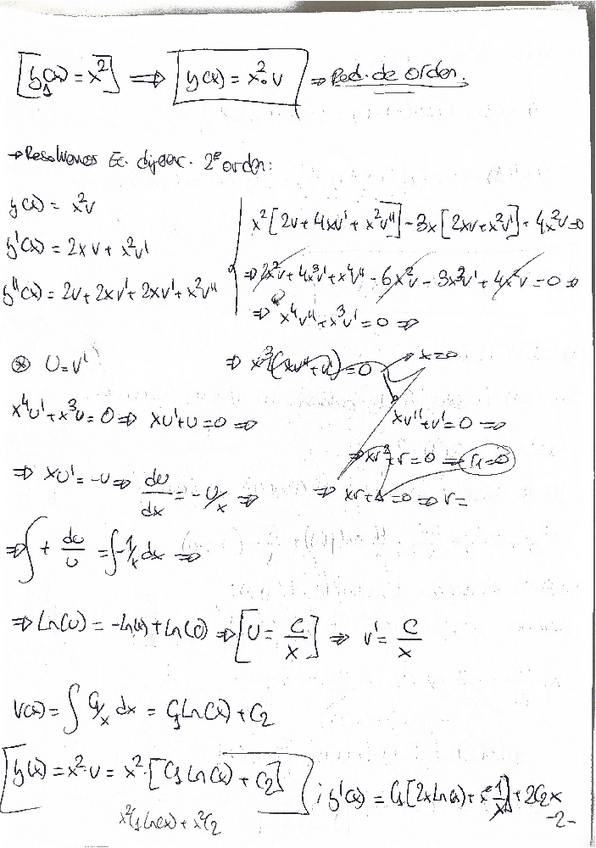 [y₁(x) = x²] ⟹ y(x) = x²·v ⇒ Red. de orden.
→ Resolvemos Ec. diferc. 2º orden:
y(x) = x²v
y'(x) = 2xv + x²v'
y''(x) = 2v + 2xv' + 2xv' + x²v''
x²[2v + 4xv' + x²v''] - 3x[2xv + x²v'] + 4x²v = 0
⇒ 2x²v + 4x³v' + x⁴v'' - 6x²v - 3x³v' + 4x²v = 0 ⇒
⇒ x⁴v'' + x³v' = 0 ⇒
⇒ x³(xv'' + v') = 0 → x = 0
xv'' + v' = 0 ⇒
⇒ xr² + r = 0 ⇒ r₁ = 0
⇒ xr + 1 = 0 ⇒ r =
⊛ U = v'
x⁴u' + x³u = 0 ⇒ xu' + u = 0 ⇒
⇒ xu' = -u ⇒ du/dx = -u/x ⇒
⇒ ∫ + du/u = ∫ -1/x dx ⇒
⇒ Ln(u) = -Ln(x) + Ln(C) ⇒ [U = C/x] ⇒ v' = C/x
V(x) = ∫ C₁/x dx = C₁Ln(x) + C₂
y(x) = x²·v = x²·[C₁Ln(x) + C₂] ; y'(x) = C₁[2xLn(x) + x² 1/x] + 2C₂x
x²C₁Ln(x) + x²C₂
-2-